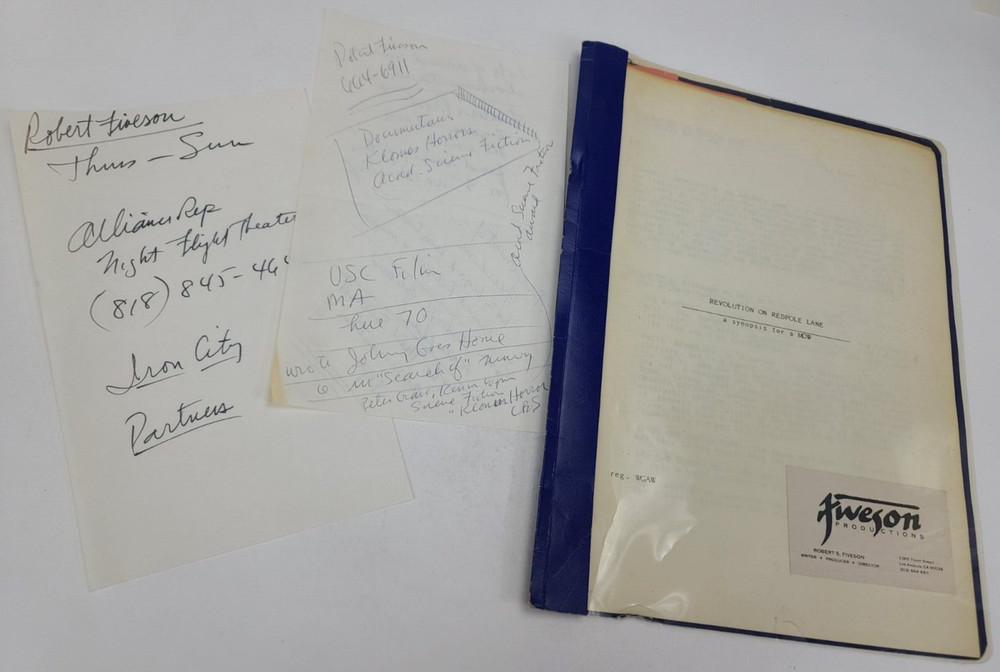 Robert Fiveson
Thurs - Sun
Alliance Rep
Night Flight Theater
(818) 845-46
Iron City
Partners
Fiveson
664-6911
Horrors
Acad. Science Fiction
Acad Science Fiction
award
USC Film
MA
hue 70
wrote Johnny Goes Home
6 in "Search of"
Peter Graves,
Science Fiction
Horror
REVOLUTION ON REDPOLE LANE
a synopsis for a MOW
reg. WGAW
Fiveson
PRODUCTIONS
ROBERT S. FIVESON
WRITER • PRODUCER • DIRECTOR
Los Angeles CA